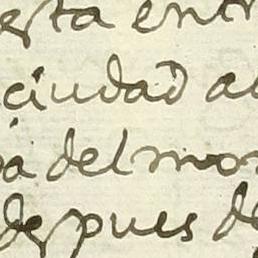 esta entr
ciudad a
a del mo
despues de